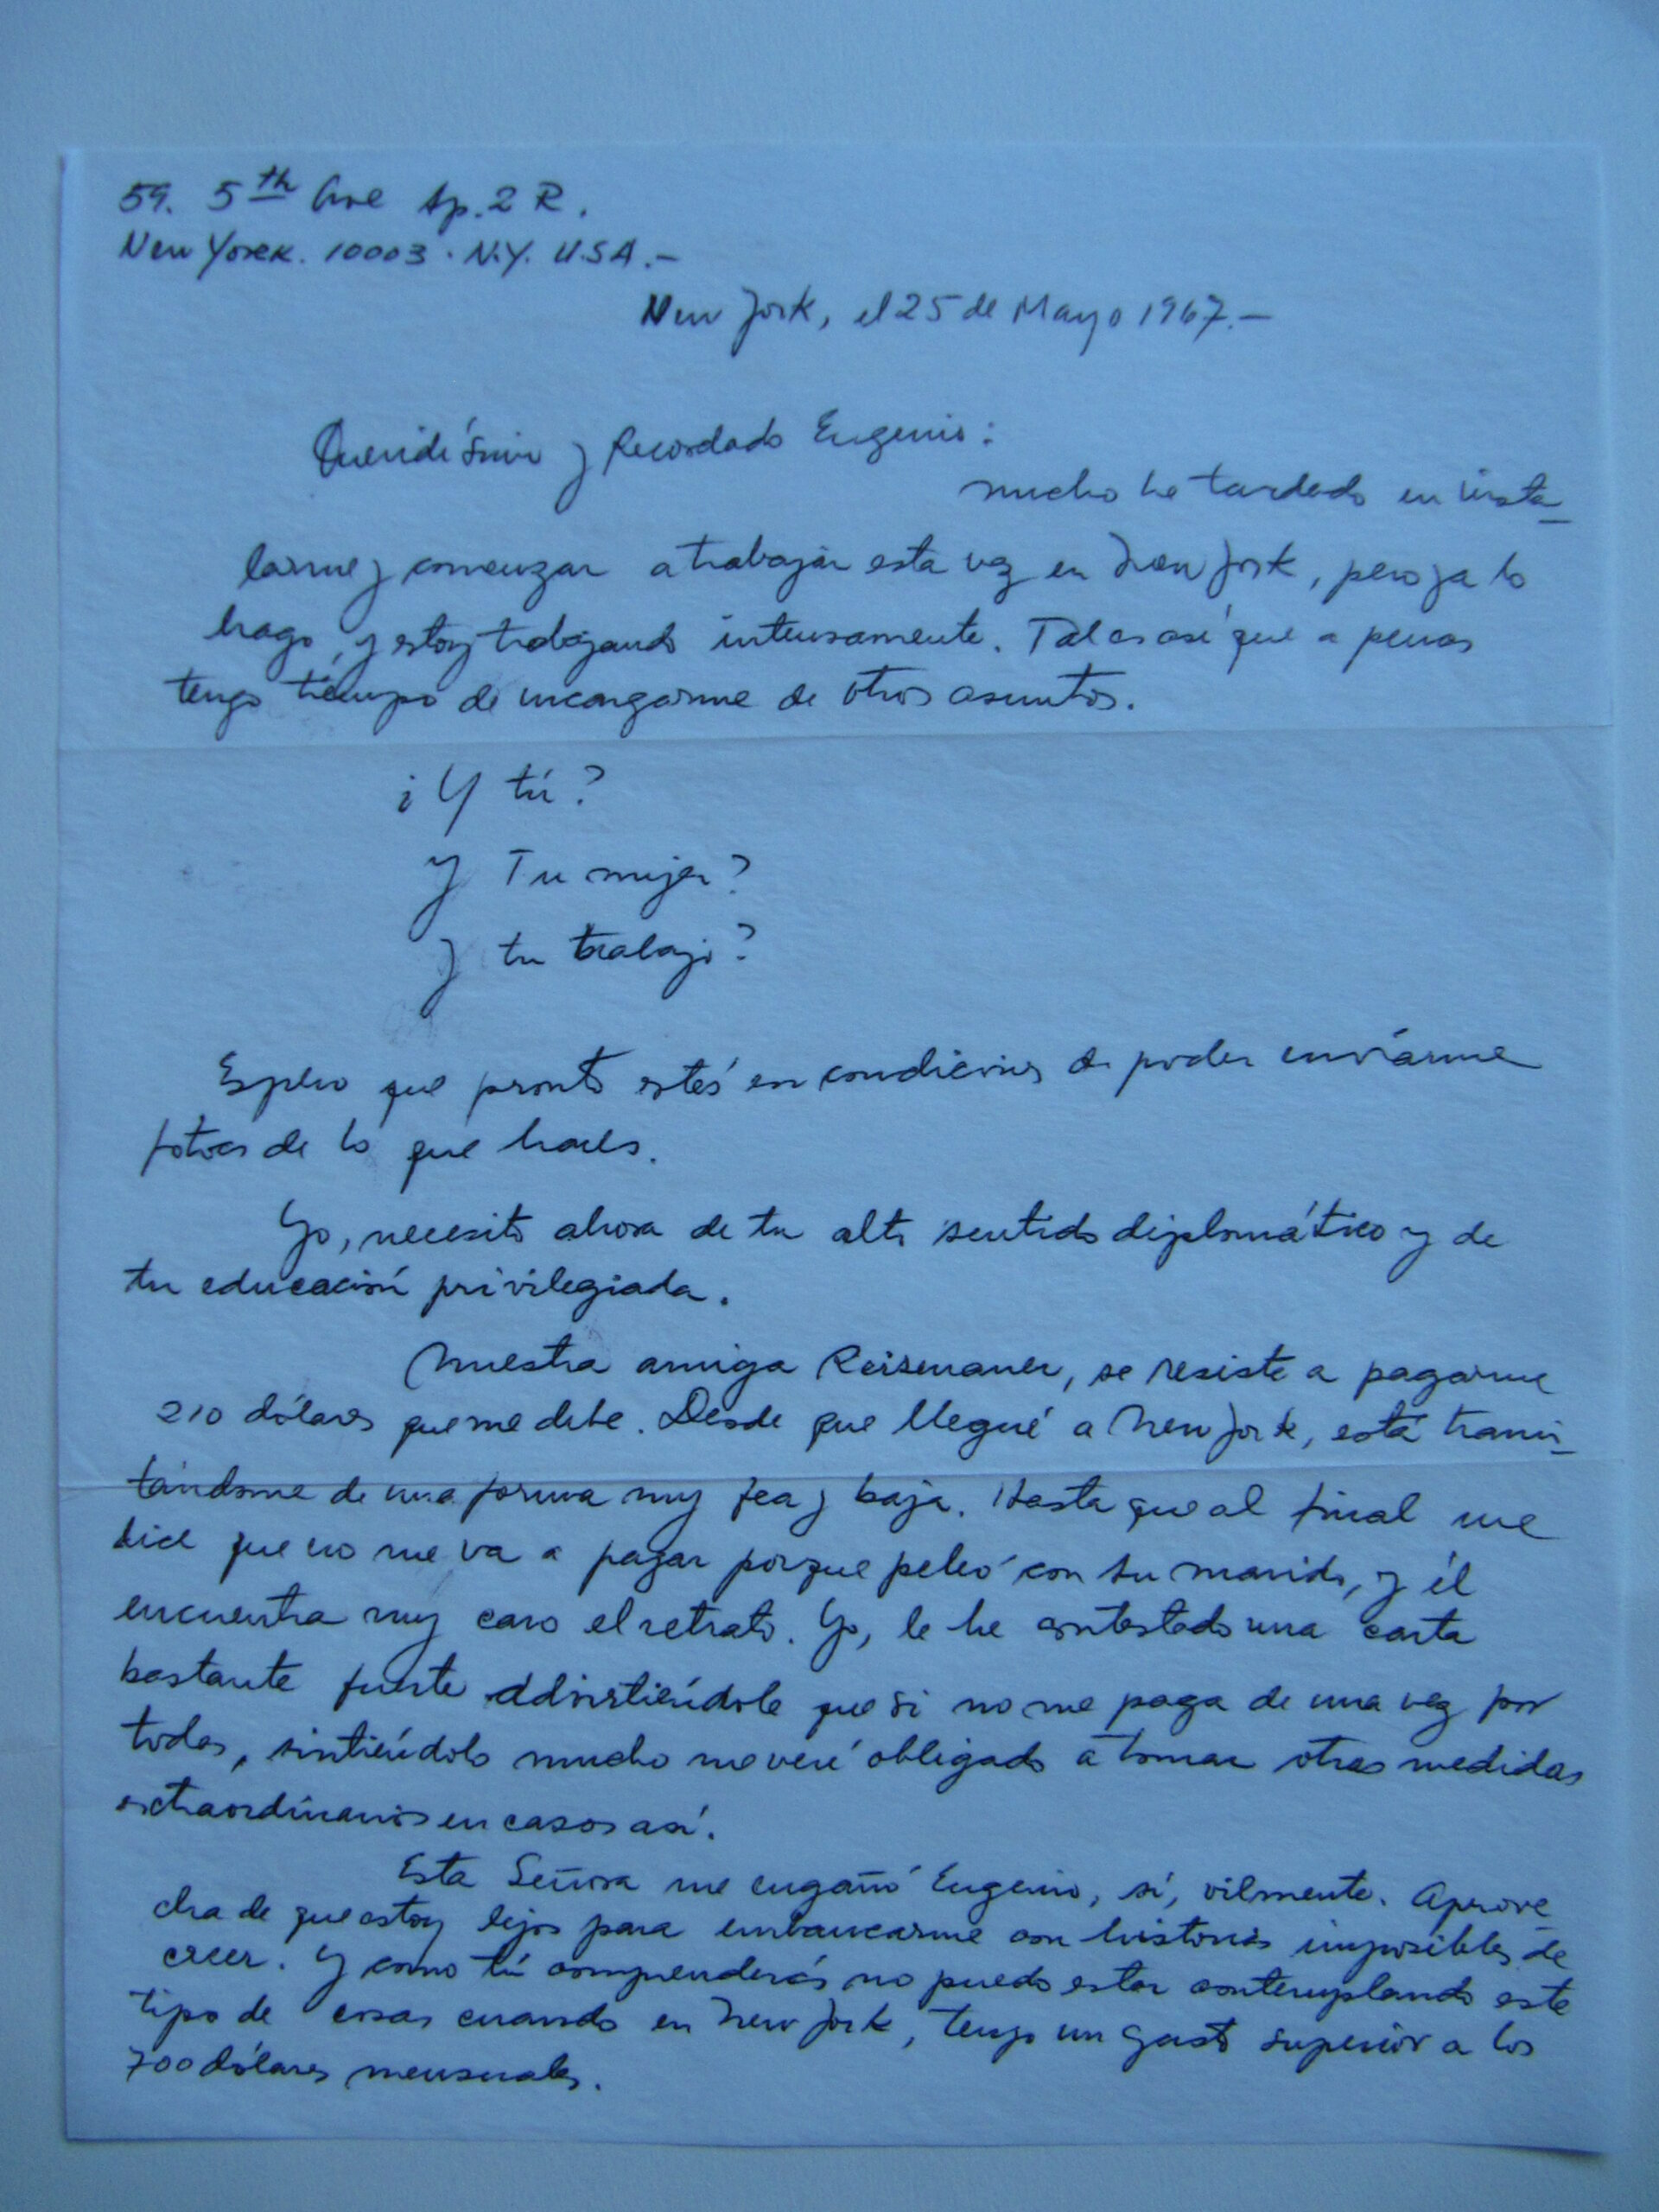 59. 5th Ave Ap. 2 R.
New Yorek. 10003. N.Y. U.S.A.-
New York, el 25 de Mayo 1967.-
Queridísimo y Recordado Eugenio:
mucho he tardado en insta-
larme y comenzar a trabajar esta vez en New York, pero ya lo
hago, y estoy trabajando intensamente. Tal es así que a penas
tengo tiempo de encargarme de otros asuntos.
¿Y tú?
y Tu mujer?
y tu trabajo?
Espero que pronto estés en condiciones de poder enviárme
fotos de lo que haces.
Yo, necesito ahora de tu alto sentido diplomático y de
tu educación privilegiada.
Nuestra amiga se resiste a pagarme
210 dólares que me debe. Desde que llegué a New York, está
de una forma muy fea y baja. Hasta que al final me
dice que no me va a pagar porque peleó con su marido, y él
encuentra muy caro el retrato. Yo, le he contestado una carta
bastante fuerte que si no me paga de una vez por
todas, sintiéndolo mucho me veré obligado a tomar otras medidas
extraordinarias en casos así.
Esta Señora me engañó Eugenio, sí, vilmente. Aprove-
cha de que estoy lejos para embaucarme con historias imposibles de
creer. Y como tú comprenderás no puedo estar contemplando este
tipo de cosas cuando en New York, tengo un gasto superior a los
700 dólares mensuales.